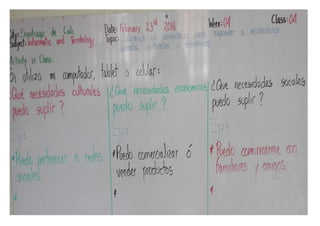 City: Santiago de Cali Date: February 23rd 2016 Week: 04 Class: 04
Subject: Informatic and Technology Topic: responder a necesidades
culturales, sociales y económicas
Activity in Class:
Si utilizo mi computador, tablet o celular:
¿Qué necesidades culturales
puedo suplir?
Ej:
*Puedo pertenecer a redes
sociales.
*
¿Que necesidades economicas
puedo suplir?
Ej:
*Puedo comercializar ó
vender productos
*
¿Que necesidades sociales
puedo suplir?
Ej:
* Puedo comunicarme con
familiares y amigos.
*